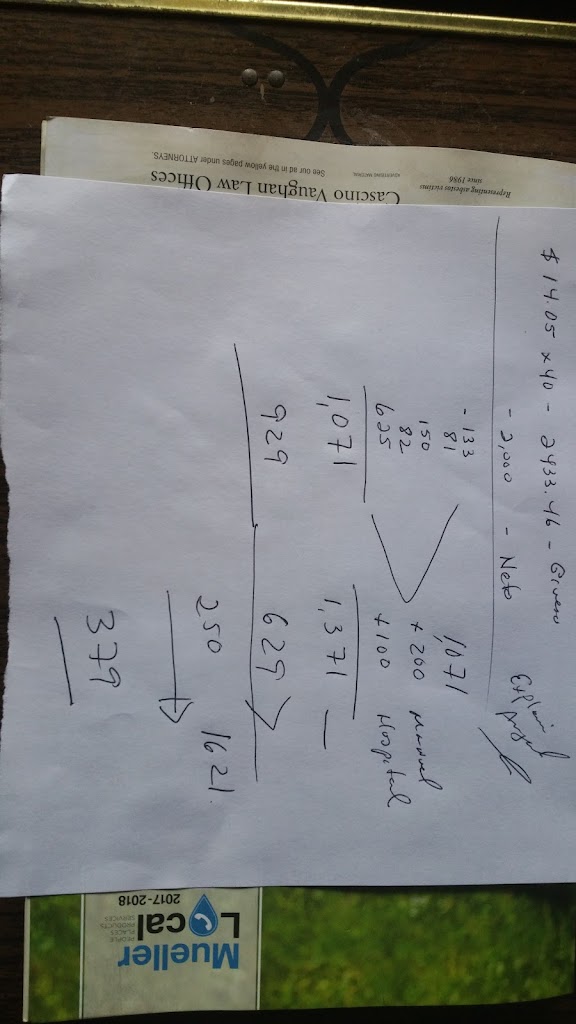 $14.05 x 40 - 2433.46 - Gross
- 2,000 - Net
- 133
81
150
82
625
1,071
929
1,071
+ 200
+ 100 Hospital
1,371 —
629
250
1621.
379
Cascino Vaughan Law Offices
See our ad in the yellow pages under ATTORNEYS.
Representing asbestos victims
since 1986
ADVERTISING MATERIAL
Mueller
Local
PEOPLE
PLACES
PRODUCTS
SERVICES
2017-2018